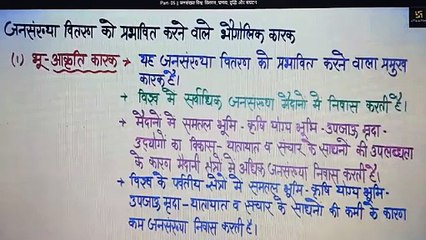 जनसंख्या वितरण को प्रभावित करने वाले भौगोलिक कारक
(1) भू-आकृति कारक → यह जनसंख्या वितरण को प्रभावित करने वाला प्रमुख
कारक है।
→ विश्व में सर्वाधिक जनसंख्या मैदानों में निवास करती है।
→ मैदानों में समतल भूमि - कृषि योग्य भूमि - उपजाऊ मृदा -
उद्योगों का विकास - यातायात व संचार के साधनों की उपलब्धता
के कारण मैदानी क्षेत्रों में अधिक जनसंख्या निवास करती है।
→ विश्व के पर्वतीय क्षेत्रों में समतल भूमि - कृषि योग्य भूमि -
उपजाऊ मृदा - यातायात व संचार के साधनों की कमी के कारण
कम जनसंख्या निवास करती है।